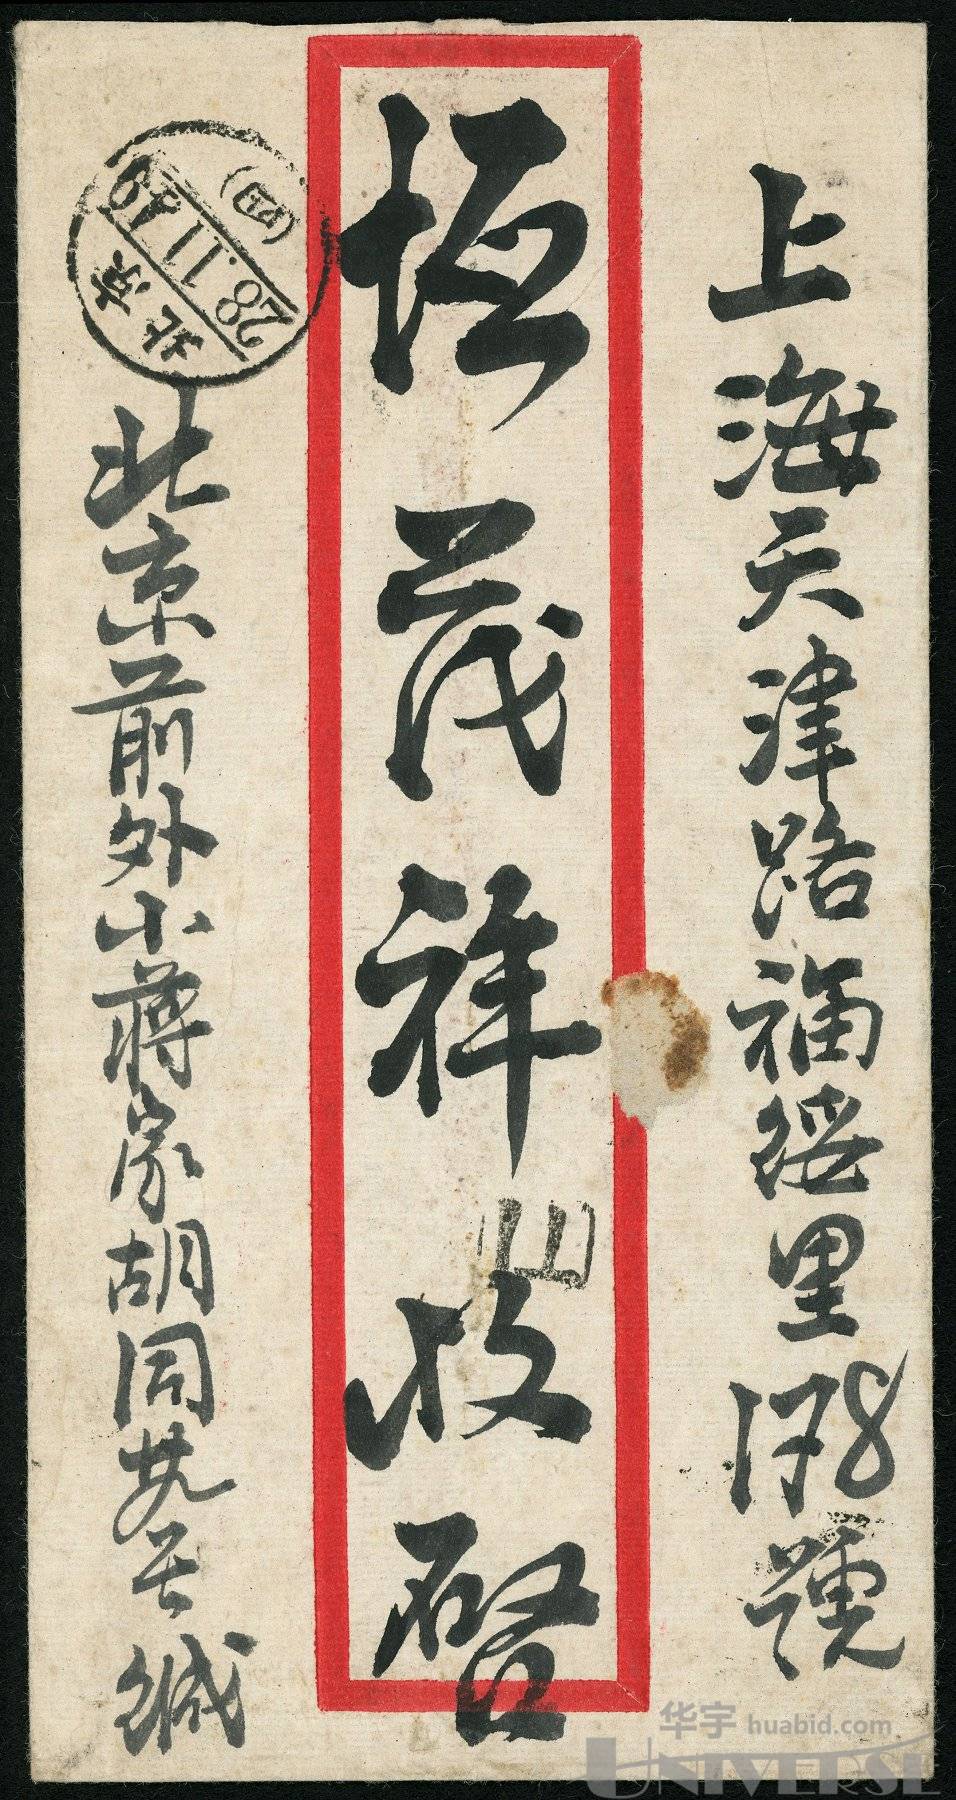 上海天津路福绥里178號
恒茂祥收啓
北京前外小蒋家胡同共0号缄
北京
28.11.49
(四)
山
华宇 huabid.com
UNIVERSE